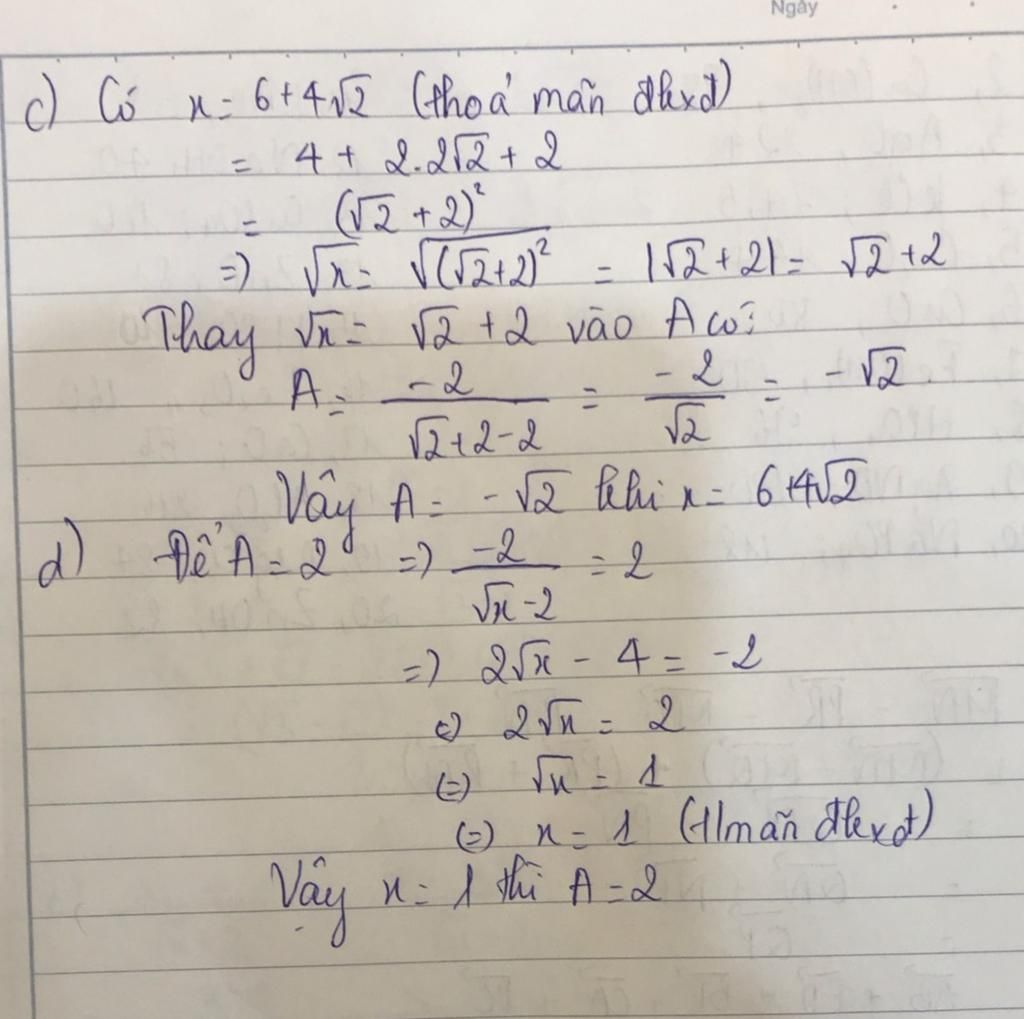 Ngày
c) Có x = 6+4√2 (thoả mãn đkxđ)
= 4 + 2.2√2 + 2
= (√2 + 2)²
=> √x = √(√2+2)² = |√2+2| = √2+2
Thay √x = √2 + 2 vào A có:
A = -2/(√2+2-2) = -2/√2 = -√2
Vậy A = -√2 khi x = 6+4√2
d) Để A = 2 => -2/(√x-2) = 2
=> 2√x - 4 = -2
(=) 2√x = 2
(=) √x = 1
(=) x = 1 (t/mãn đkxđ)
Vậy x = 1 thì A = 2